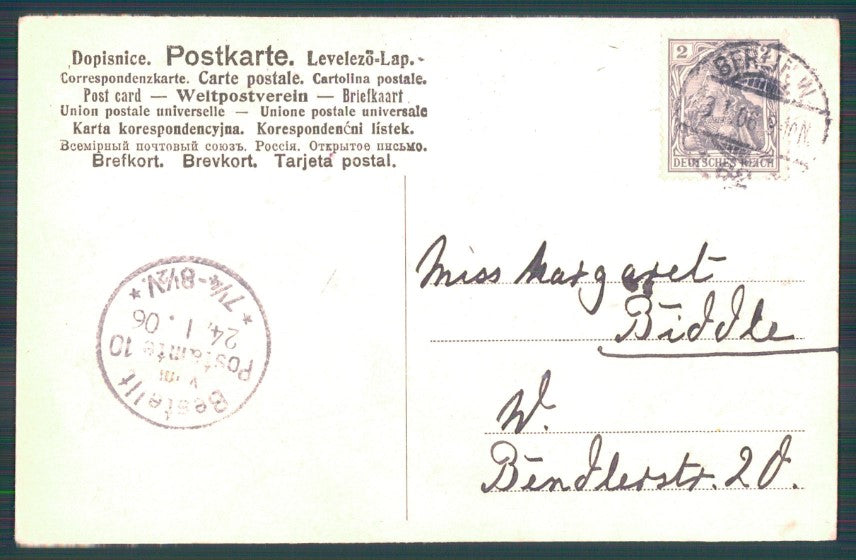 Dopisnice. Postkarte. Levelező-Lap.
Correspondenzkarte. Carte postale. Cartolina postale.
Post card — Weltpostverein — Briefkaart
Union postale universelle — Unione postale universale
Karta korespondencyjna. Korespondenční lístek.
Всемірный почтовый союзъ. Россія. Открытое письмо.
Brefkort. Brevkort. Tarjeta postal.
2
DEUTSCHES REICH
BERLIN W.
Miss Margaret
Biddle
W.
Bendlerstr. 20.
Bestellt
vom
Postamte 10
24. 1. 06
* 7¼-8½V. *